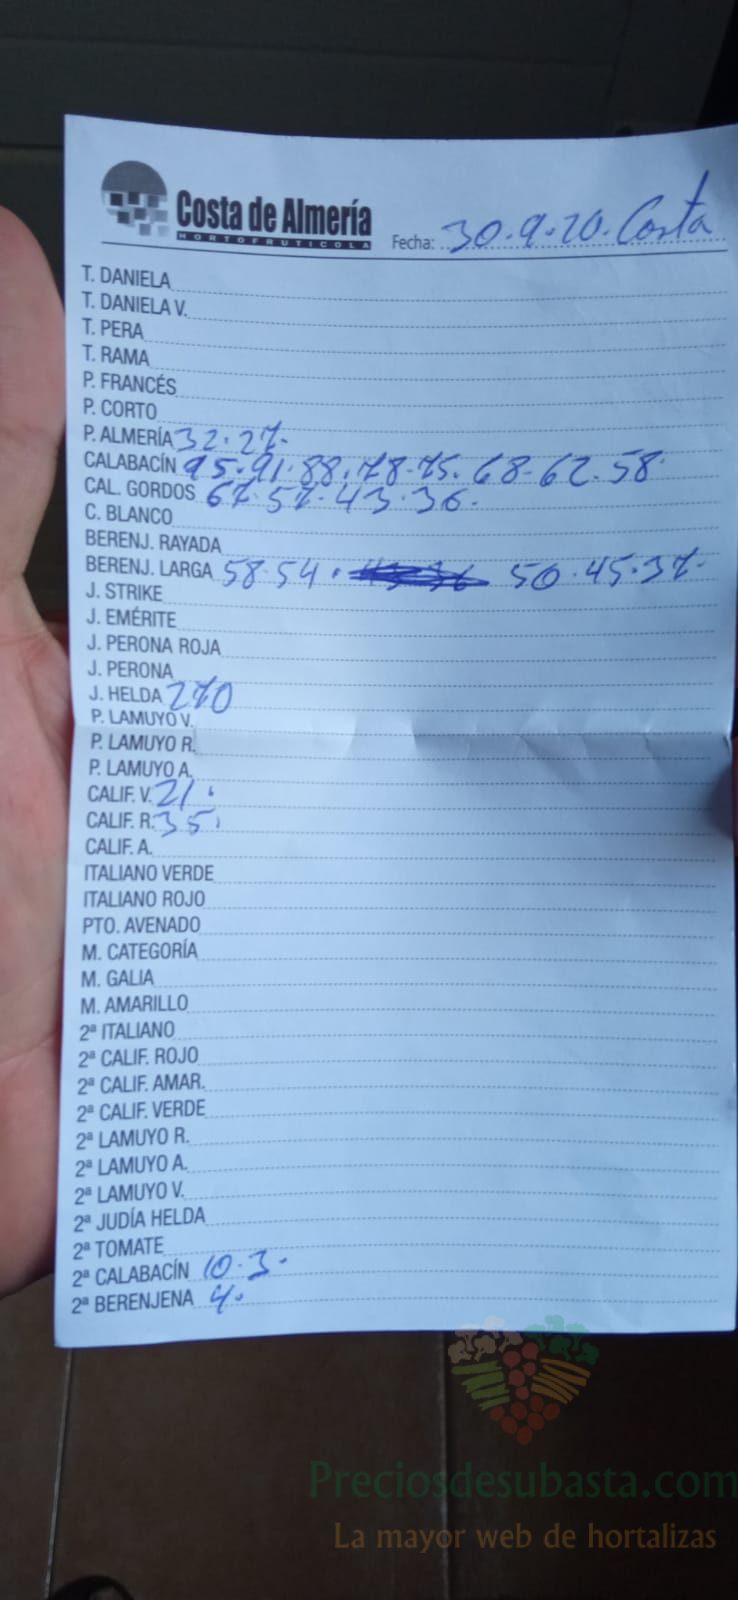 Costa de Almería
HORTOFRUTICOLA
Fecha: 30.9.20. Costa
T. DANIELA
T. DANIELA V.
T. PERA
T. RAMA
P. FRANCÉS
P. CORTO
P. ALMERÍA 32.27.
CALABACÍN 95.91.88.78.75.68-62.58.
CAL. GORDOS 67.57.43.36.
C. BLANCO
BERENJ. RAYADA
BERENJ. LARGA 58.54. 50.45.37.
J. STRIKE
J. EMÉRITE
J. PERONA ROJA
J. PERONA
J. HELDA 270
P. LAMUYO V.
P. LAMUYO R.
P. LAMUYO A.
CALIF. V. 21.
CALIF. R. 35.
CALIF. A.
ITALIANO VERDE
ITALIANO ROJO
PTO. AVENADO
M. CATEGORÍA
M. GALIA
M. AMARILLO
2ª ITALIANO
2ª CALIF. ROJO
2ª CALIF. AMAR.
2ª CALIF. VERDE
2ª LAMUYO R.
2ª LAMUYO A.
2ª LAMUYO V.
2ª JUDÍA HELDA
2ª TOMATE
2ª CALABACÍN 10.3.
2ª BERENJENA 4.
Preciosdesubasta.com
La mayor web de hortalizas